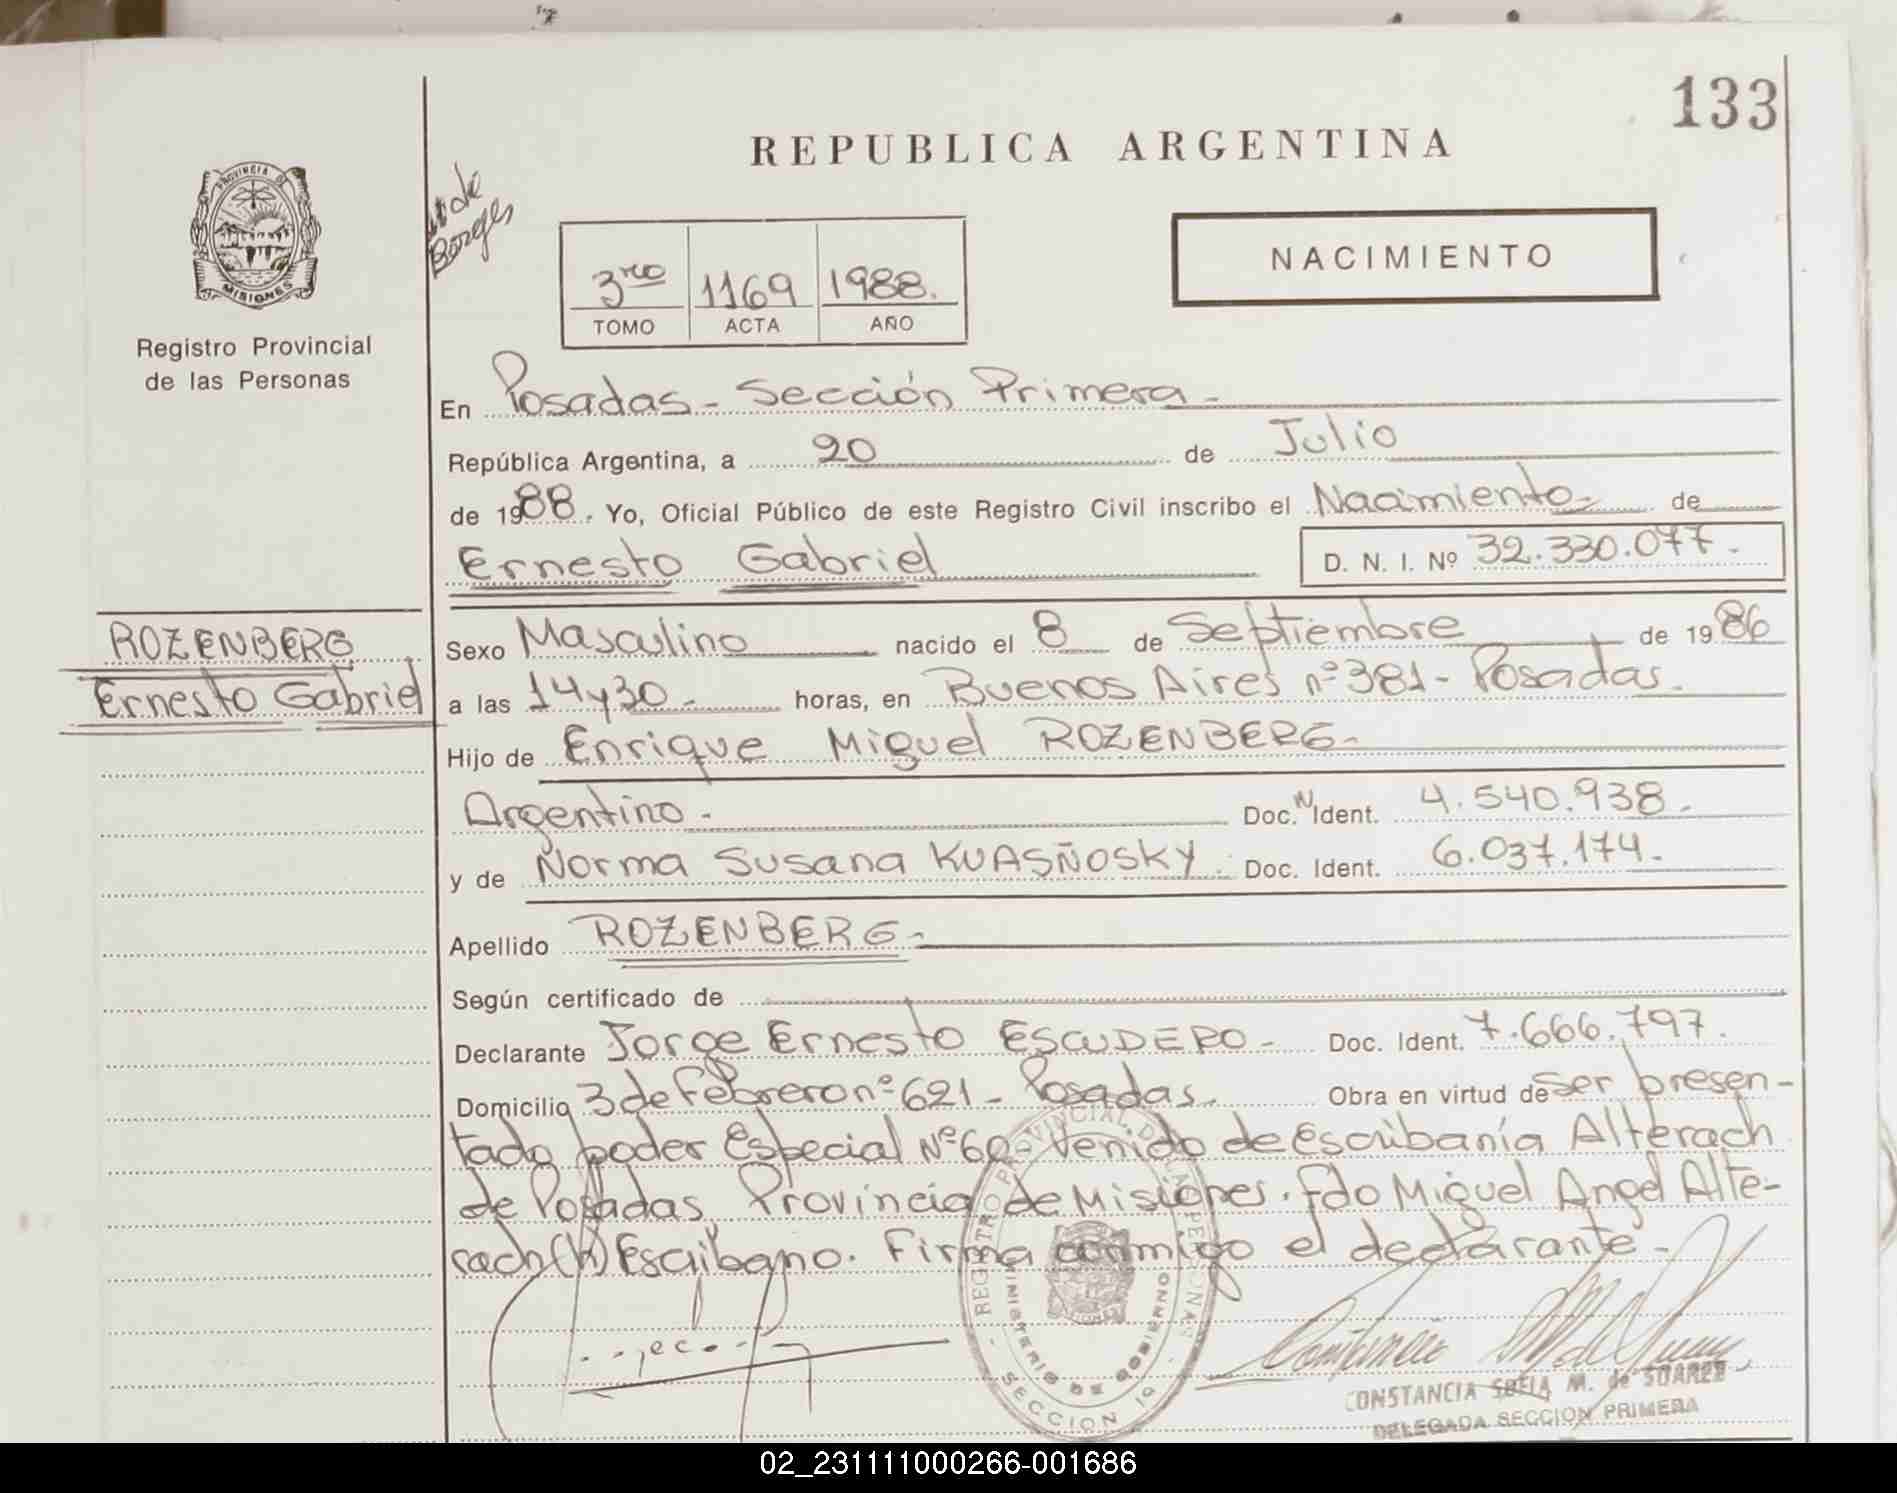 133
REPUBLICA ARGENTINA
PROVINCIA DE
MISIONES
Registro Provincial
de las Personas
de
Borges
3ro 1169 1988.
TOMO ACTA AÑO
NACIMIENTO
En Posadas - Sección Primera -
República Argentina, a 20 de Julio
de 1988. Yo, Oficial Público de este Registro Civil inscribo el Nacimiento - de
Ernesto Gabriel D. N. I. Nº 32.330.077.
ROZENBERG
Ernesto Gabriel
Sexo Masculino nacido el 8 de Septiembre de 1986
a las 14 y 30 - horas, en Buenos Aires nº 381 - Posadas.
Hijo de Enrique Miguel ROZENBERG -
Argentino. Doc. N Ident. 4.540.938.
y de Norma Susana KUASÑOSKY. Doc. Ident. 6.037.174.
Apellido ROZENBERG -
Según certificado de
Declarante Jorge Ernesto ESCUDERO - Doc. Ident. 7.666.797.
Domicilio 3 de Febrero nº 621 - Posadas. Obra en virtud de Ser presen-
tado poder Especial Nº 60 - Venido de Escribanía Alterach
de Posadas Provincia de Misiones. Fdo Miguel Angel Alte-
rach (h) Escribano. Firma conmigo el declarante -
REGISTRO PROVINCIAL DE LAS PERSONAS
MINISTERIO DE GOBIERNO
- SECCION 1º -
CONSTANCIA SOFIA M. de SUAREZ
DELEGADA SECCION PRIMERA
02_231111000266-001686